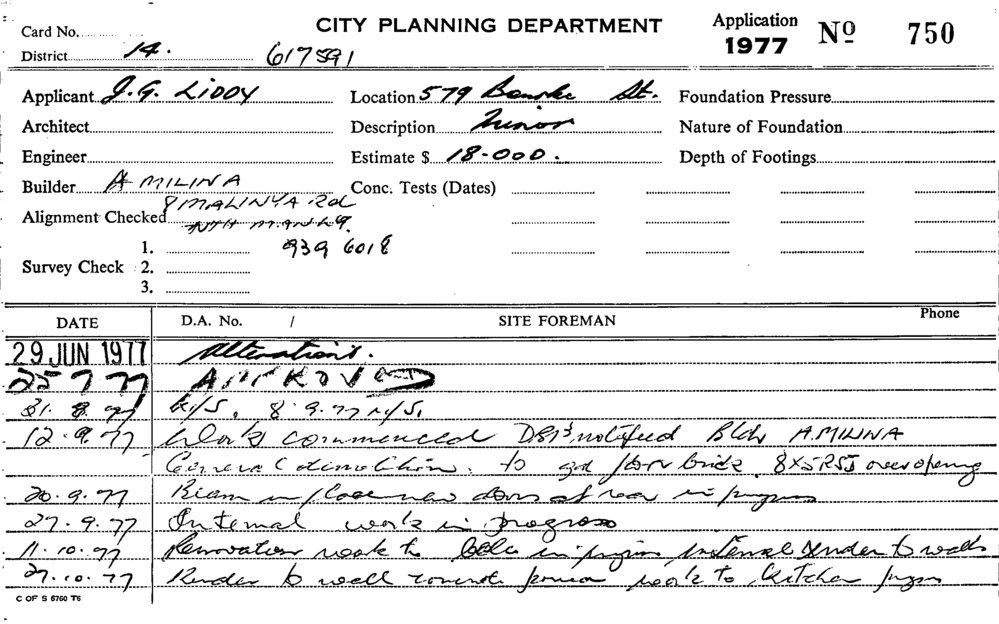 Card No.
CITY PLANNING DEPARTMENT
Application 1977 Nº 750
District 14. 617591
Applicant J.G. LIDDY
Location 579 Bourke St.
Foundation Pressure
Architect
Description Minor
Nature of Foundation
Engineer
Estimate $ 18-000.
Depth of Footings
Builder A MILINA
Conc. Tests (Dates)
8 MALINYA Rd
Alignment Checked NTH MANLY.
1. 939 6018
Survey Check 2.
3.
DATE D.A. No. / SITE FOREMAN Phone
29 JUN 1977 Alterations.
25 7 77 APPROVED
31. 8. 77 N/S. 8.9.77 N/S.
12.9.77 Work commenced notified Bldr A.MILINA
General demolition. to brick. 8X5 RSJ over opening
20.9.77 Beam in place new doors at rear in progress
27.9.77 Internal work in progress
11.10.77 Renovation work to in progress internal render to walls
27.10.77 Render to wall work to Kitchen progress
C OF S 6760 T6